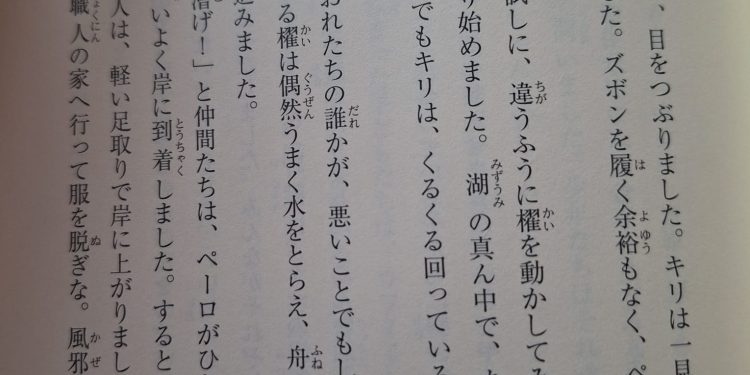 、目をつぶりました。キリは一目
した。ズボンを履く余裕もなく、ペ
試しに、違うふうに櫂を動かしてみ
り始めました。湖の真ん中で、
でもキリは、くるくる回っている
われたちの誰かが、悪いことでもし
る櫂は偶然うまく水をとらえ、舟
込みました。
漕げ!」と仲間たちは、ペーロがひ
いよく岸に到着しました。すると
人は、軽い足取りで岸に上がりまし
職人の家へ行って服を脱ぎな。風邪